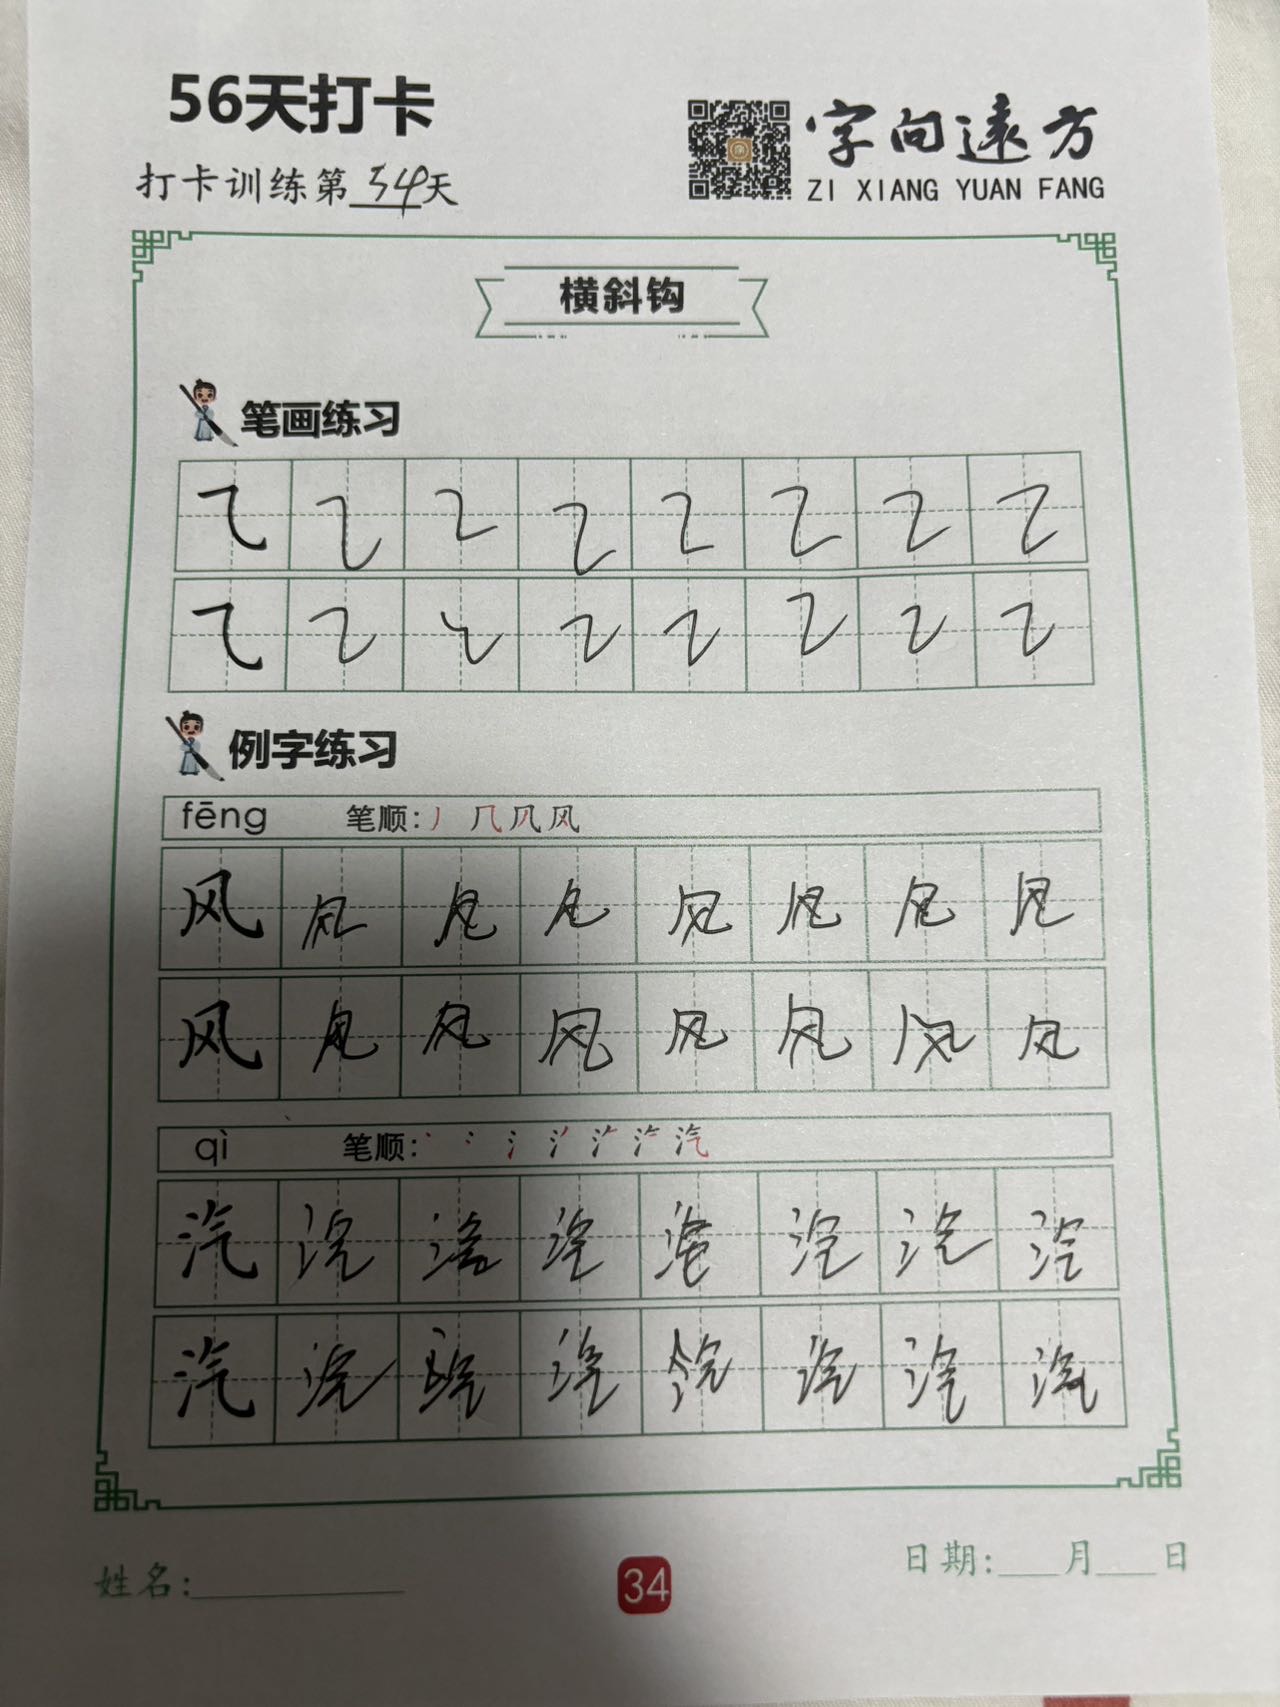 56天打卡
打卡训练第34天
字向远方
ZI XIANG YUAN FANG
横斜钩
笔画练习
㇈ ㇈ ㇈ ㇈ ㇈ ㇈ ㇈ ㇈
㇈ ㇈ ㇈ ㇈ ㇈ ㇈ ㇈ ㇈
例字练习
fēng 笔顺: 丿 几 风 风
风 风 风 风 风 风 风 风
风 风 风 风 风 风 风 风
qì 笔顺: 汽
汽 汽 汽 汽 汽 汽 汽 汽
汽 汽 汽 汽 汽 汽 汽 汽
姓名:
34
日期: 月 日